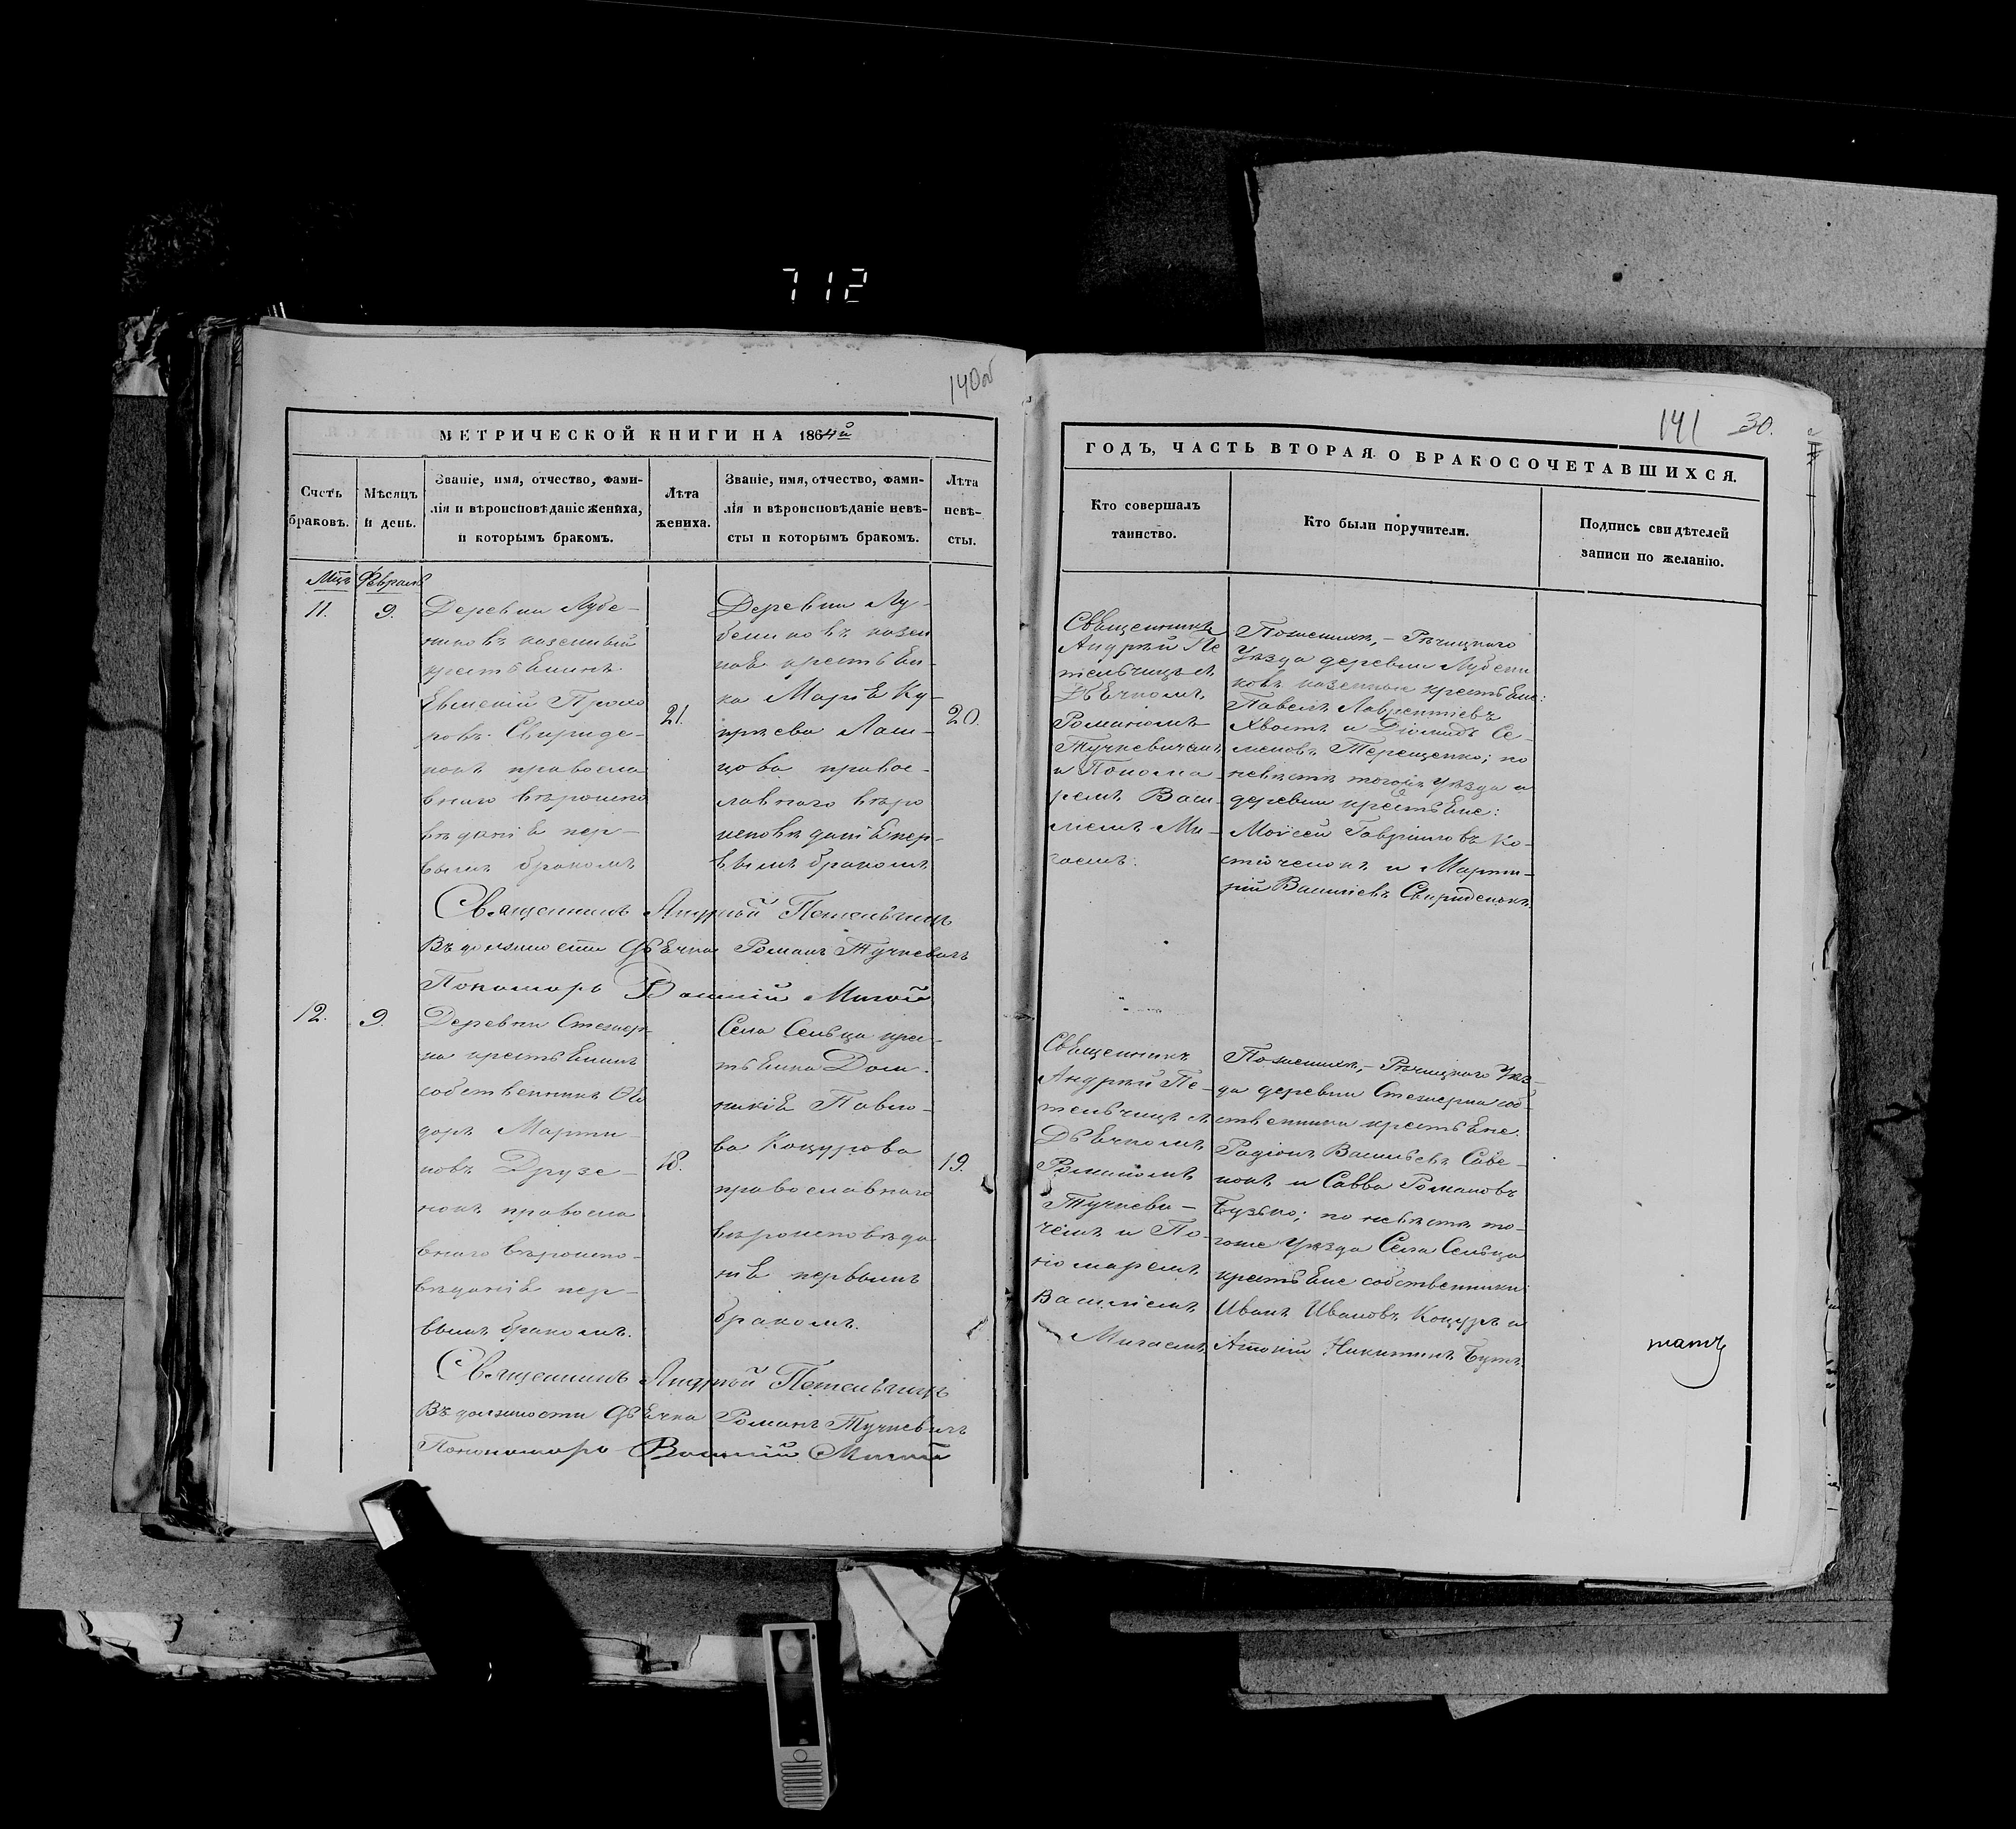 712
140об
МЕТРИЧЕСКОЙ КНИГИ НА 1864й
Счетъ браковъ.
Мѣсяцъ и день.
Званіе, имя, отчество, фами-
лія и вѣроисповѣданіе жениха,
и которымъ бракомъ.
Лѣта жениха.
Званіе, имя, отчество, фами-
лія и вѣроисповѣданіе невѣ-
сты и которымъ бракомъ.
Лѣта невѣ-
сты.
Мцъ Февраль
11.
9.
Деревни Лубе-
никовъ казенный
крестьянинъ
Евмений Прохо
ровъ Свириде-
нокъ православ
внаго вѣроиспо
вѣданія пер-
вымъ бракомъ
21.
Деревни Лу-
бениковъ казен
ная крестьян-
ка Марія Ку-
пріева Лаш-
цова правос-
лавнаго вѣро
исповѣданія пер-
вымъ бракомъ
20.
Священникъ Андрей Петельчицъ
Въ должности Дьячка Романъ Тучкевичъ
Пономарь Василій Мигай
12.
9.
Деревни
на крестьянинъ
собственникъ
доръ Марти-
новъ Друзе-
нокъ правосла
внаго вѣроиспо-
вѣданія пер-
вымъ бракомъ.
18.
Села Сельца крес-
тьянка Дом-
никія Павло-
ва Коцурова
православнаго
вѣроисповѣда
нія первымъ
бракомъ.
19.
Священникъ Андрей Петельчицъ
Въ должности Дьячка Романъ Тучкевичъ
Пономарь Василій Мигай
141
30.
ГОДЪ, ЧАСТЬ ВТОРАЯ О БРАКОСОЧЕТАВШИХСЯ.
Кто совершалъ
таинство.
Кто были поручители.
Подпись свидѣтелей
записи по желанію.
Священникъ
Андрей Пе
тельчицъ съ
Дьячкомъ
Романомъ
Тучкевичемъ
и Понома-
ремъ Васи-
ліемъ Ми-
гаемъ.
По женихѣ, – Рѣчицкаго
Уѣзда деревни Лубени
ковъ казенные крестьяне:
Павелъ Лаврентіевъ
Хвостъ и Діомидъ Се-
меновъ Терещенко; по
невѣстѣ тогожъ уѣзда и
деревни крестьяне:
Мойсей Гавріиловъ Ко-
стюченокъ и Марти-
рій Василіевъ Свириденокъ.
Священникъ
Андрей Пе-
тельчицъ съ
Дьячкомъ
Романомъ
Тучкеви-
чемъ и По-
номаремъ
Василіемъ
Мигаемъ
По женихѣ, – Рѣчицкаго Уѣз-
да деревни соб
ственники крестьяне:
Радіонъ Васильевъ Саве-
нокъ и Савва Романовъ
Бузько; по невѣстѣ то-
гоже Уѣзда Села Сельца
крестьяне собственники
Иванъ Ивановъ Коцуръ и
Антоній Никитинъ Бутъ